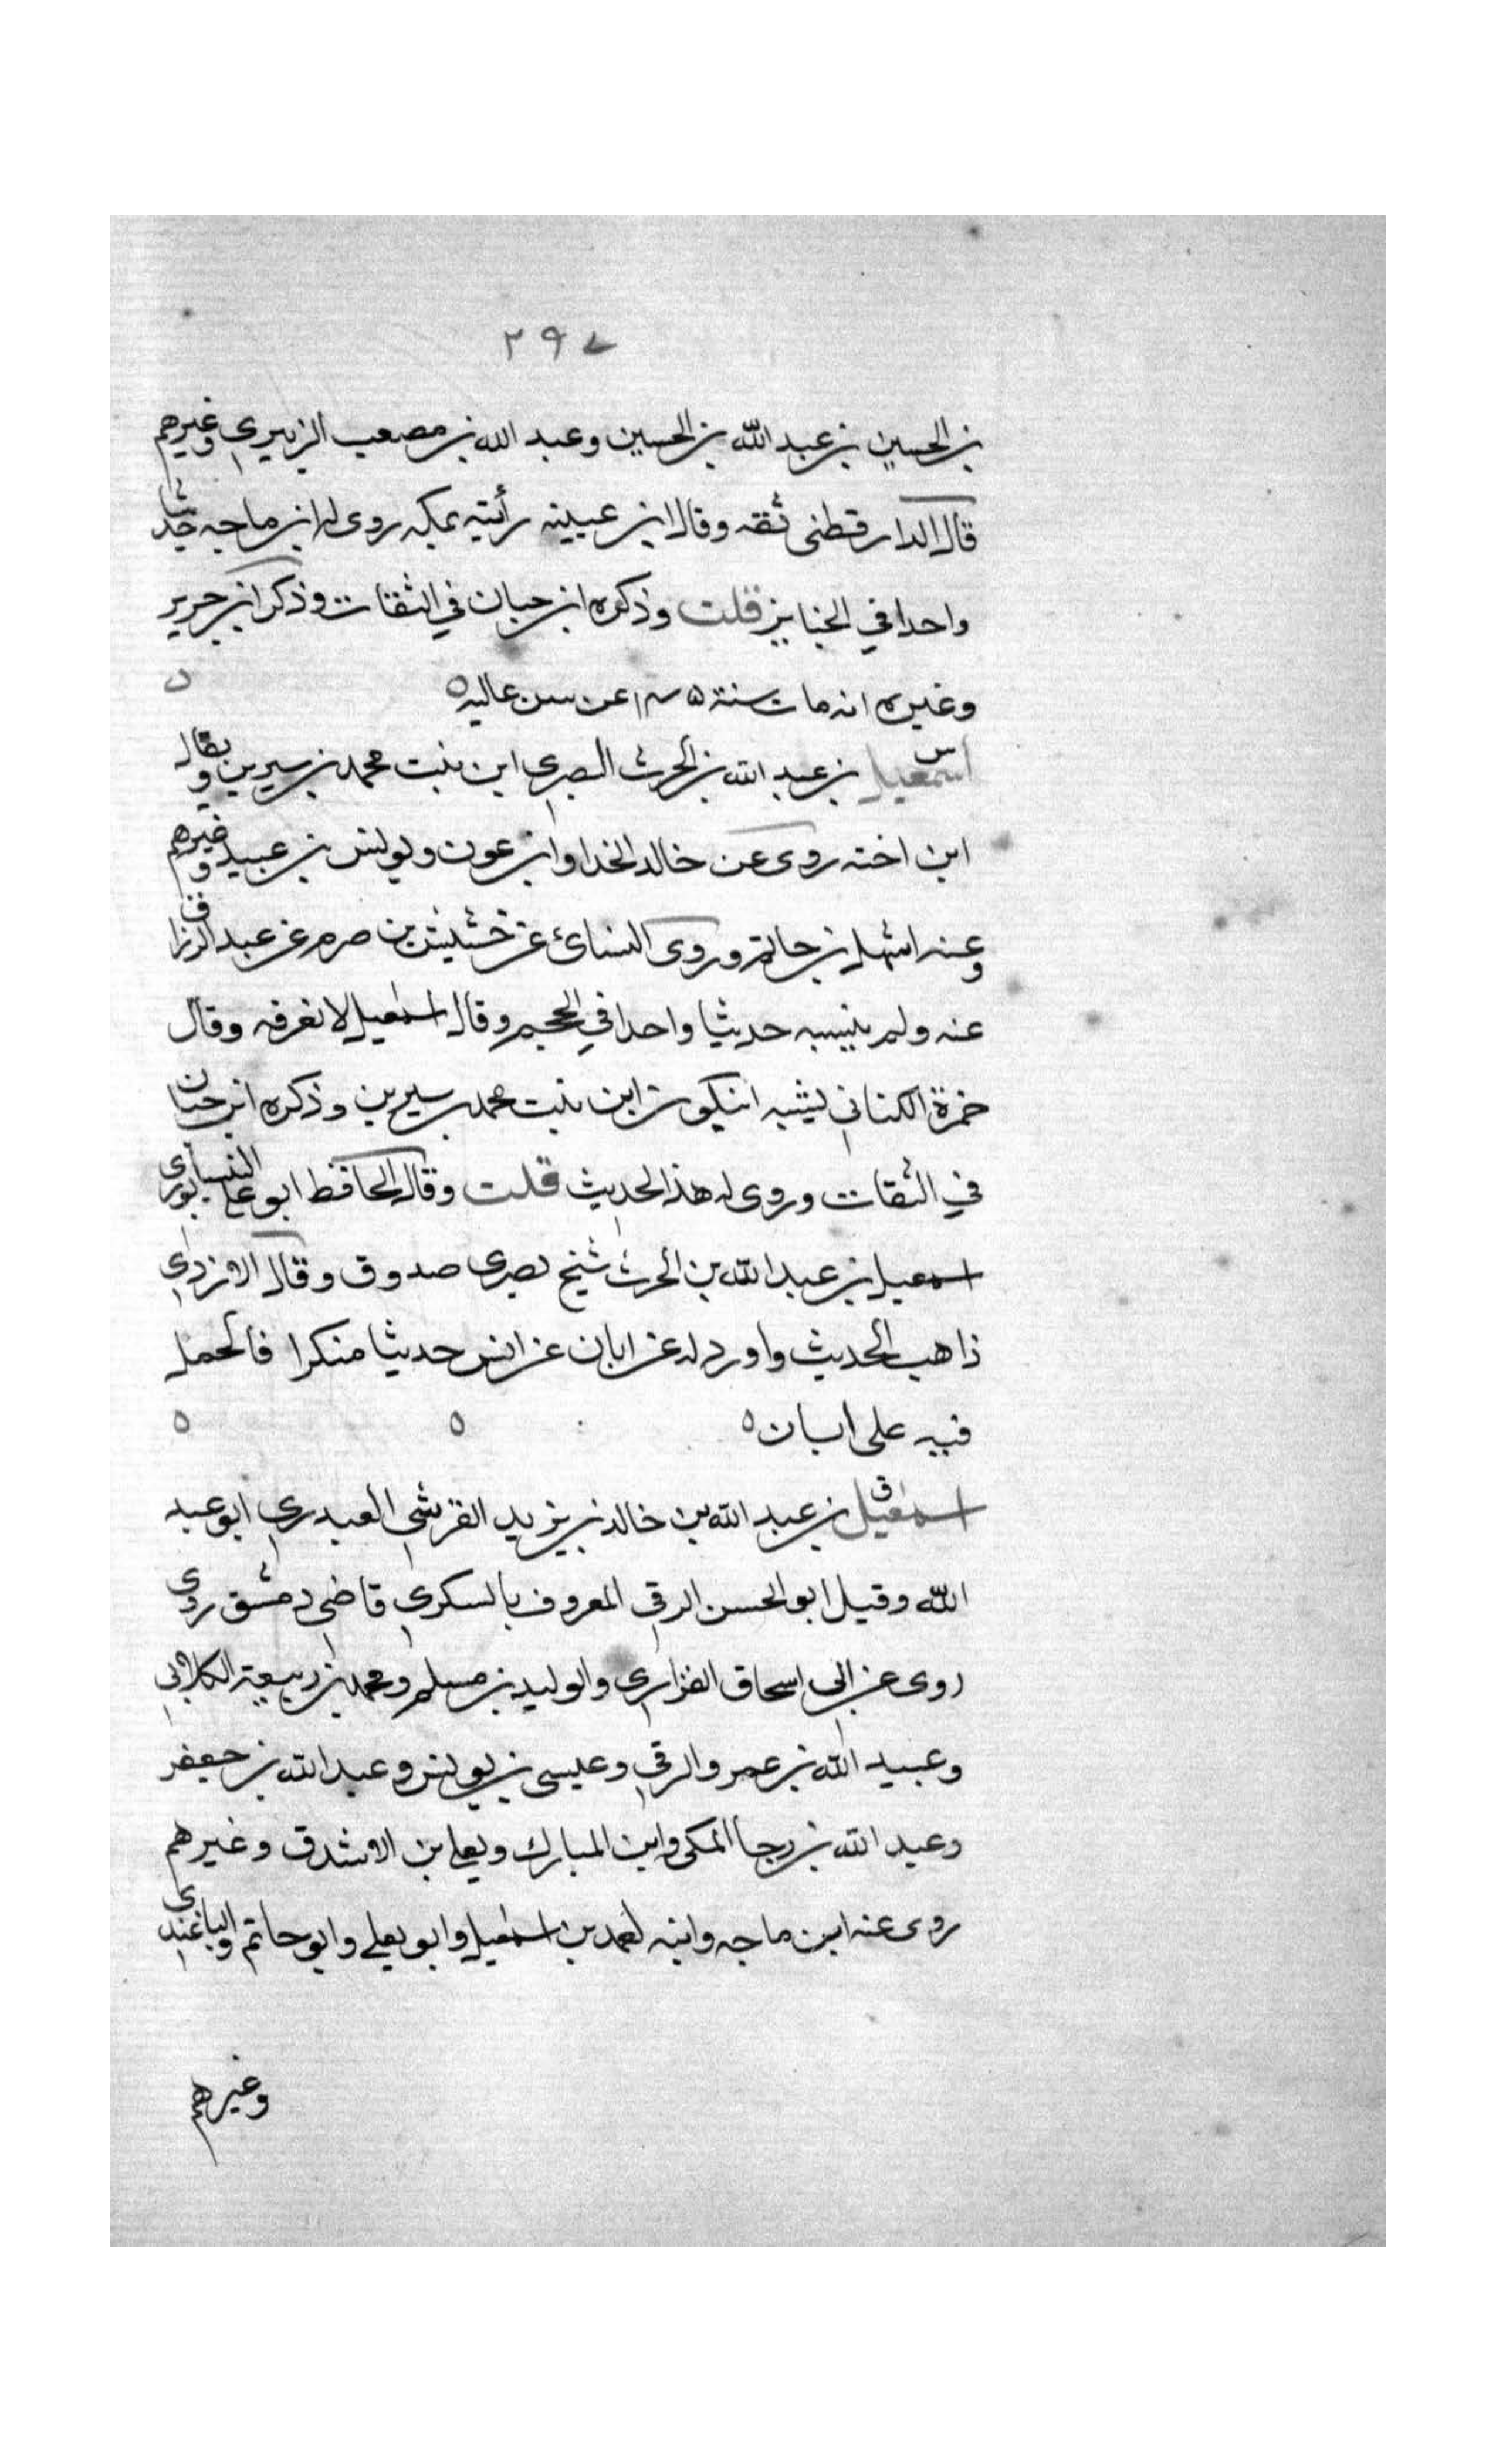 ٢٩٧
بن الحسين بن عبد الله بن الحسين وعبد الله بن مصعب الزبيري وغيرهم
قال الدارقطني ثقه وقال ابن عيينه رأيته بمكه روى له ابن ماجه حديثا
واحدا في الجنايز قلت وذكره ابن حبان في الثقات وذكر ابن جرير
وغيره انه مات سنة عن سن عاليه ه
اسمعيل بن عبد الله بن الحرث البصري ابن بنت محمد بن سيرين ويقال
ابن اخته روى عن خالد الحذا وابن عون ويونس بن عبيد وغيرهم
وعنه اشهل بن حاتم وروى النسائ عن خشيش بن صرم عن عبد الرزاق
عنه ولم ينسبه حديثا واحدا في الحجم وقال اسمعيل لا نعرفه وقال
حمزة الكناني يشبه ان يكون ابن بنت محمد بن سيرين وذكره ابن حبان
في الثقات وروى له هذا الحديث قلت وقال الحافظ ابو علي النيسابوري
اسمعيل بن عبد الله بن الحرث شيخ بصرى صدوق وقال الازدي
ذاهب الحديث واورد له عن ابان عن انس حديثا منكرا فالحمل
فيه على ابان ه
ق
اسمعيل بن عبد الله بن خالد بن يزيد القرشي العبدري ابو عبد
الله وقيل ابو الحسن الرقي المعروف بالسكري قاضي دمشق روى
روى عن ابي اسحاق الفزاري والوليد بن مسلم ومحمد بن ربيعة الكلابي
وعبيد الله بن عمرو الرقي وعيسى بن يونس وعبد الله بن جعفر
وعبد الله بن رجا المكي وابن المبارك ويعلي بن الاشدق وغيرهم
روى عنه ابن ماجه وابنه احمد بن اسمعيل وابو يعلي وابو حاتم والباغندي
وغيرهم